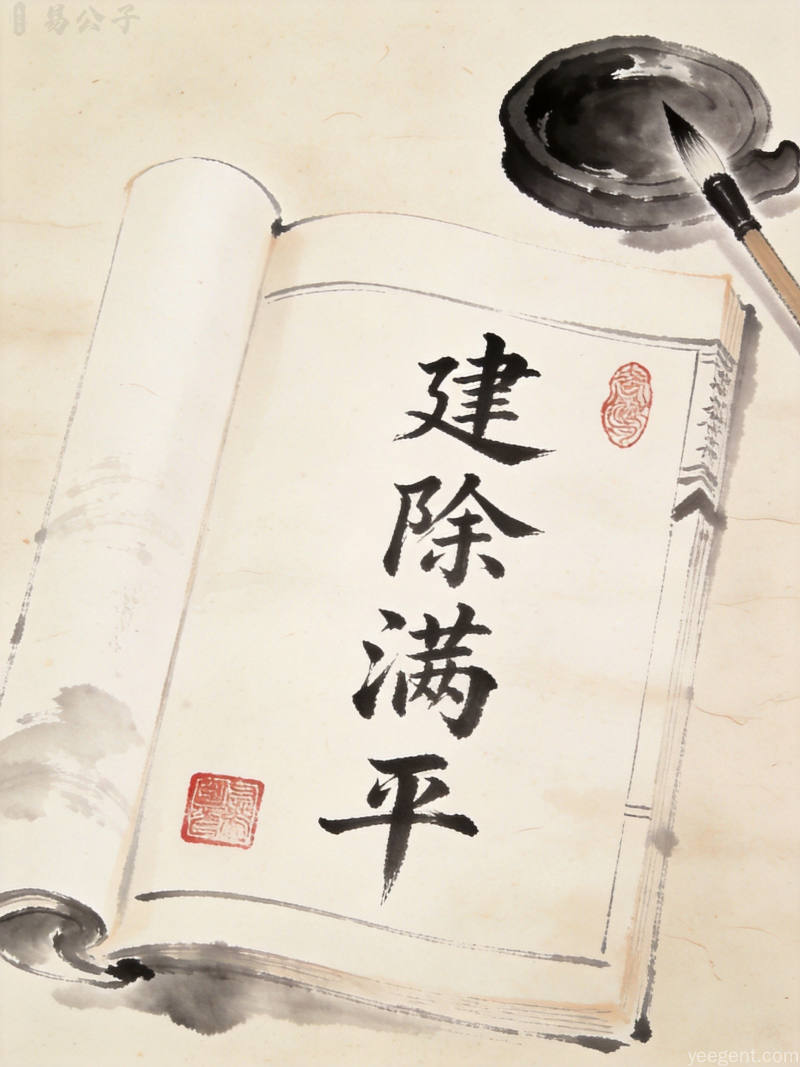 易公子
建除满平
yeegent.com